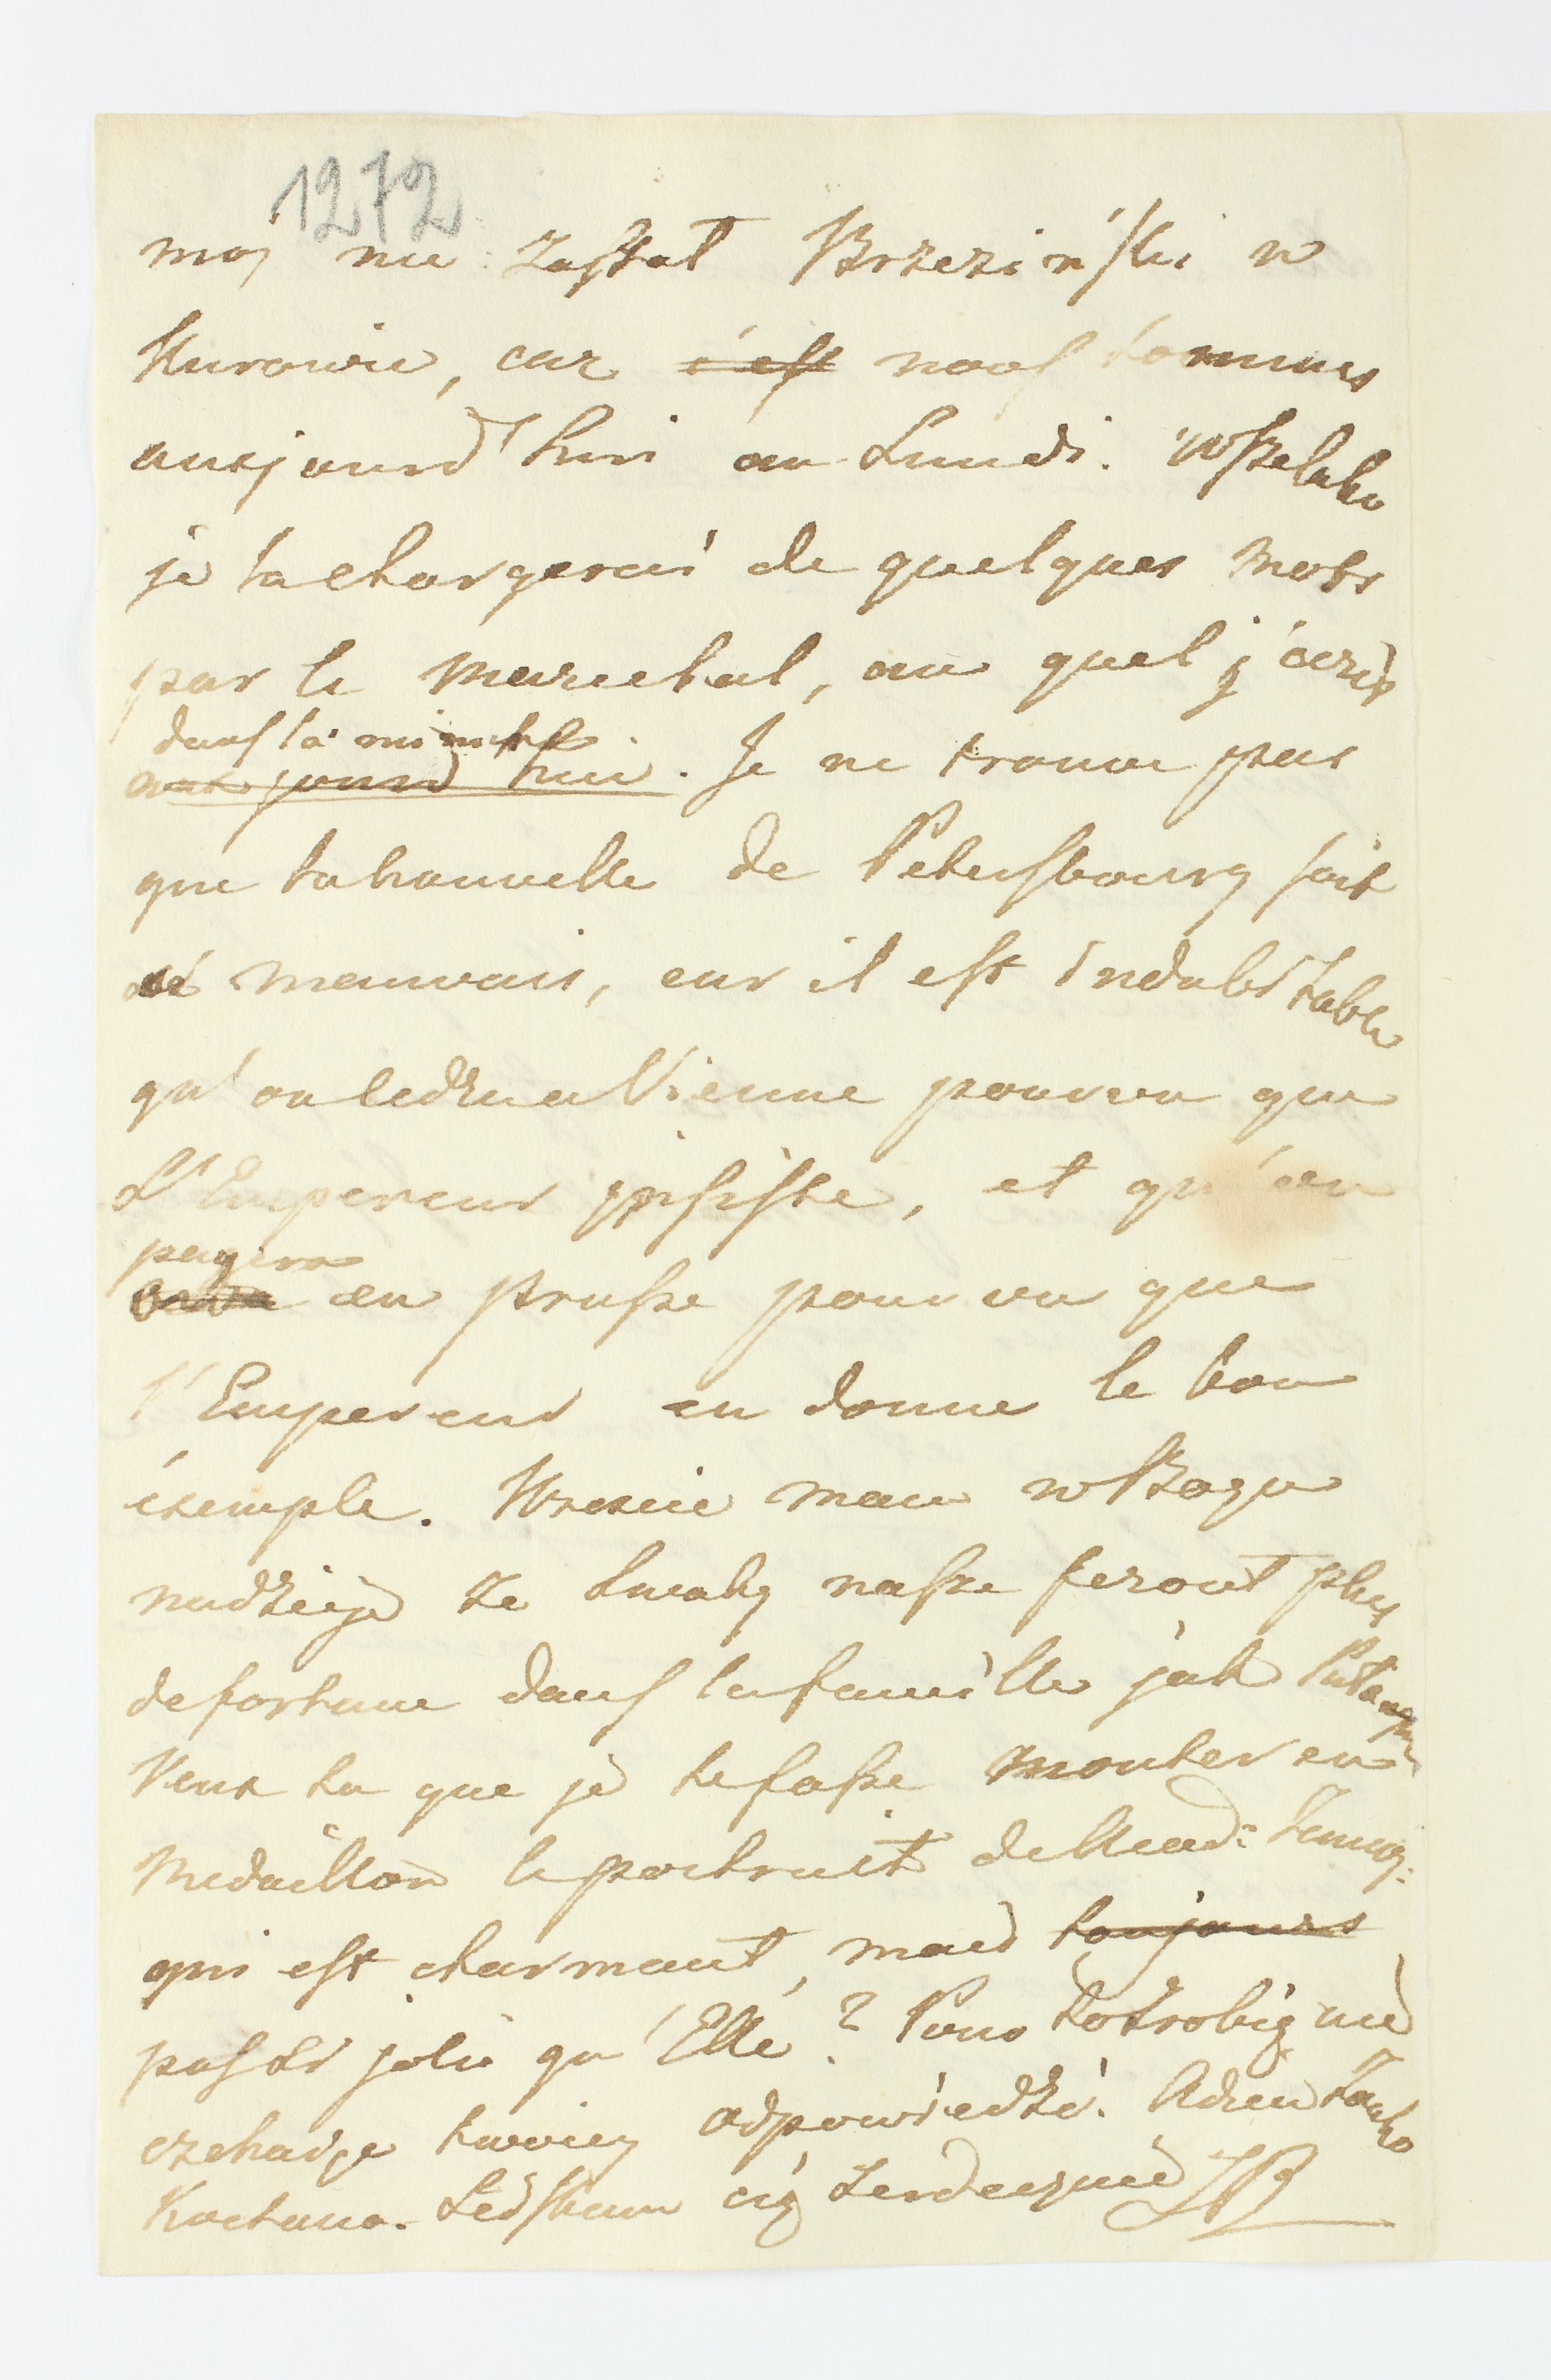 1272
moj nie zastał Brzeziński w
Kurowie, car c'est nous sommes
aujourd'hui au Lundi. Wszelako
je ta chargerai de quelques mots
par le Marechal, au quel j'écris
dans la minute
aujourd'hui. Je ne trouve pas
que ta nouvelle de Petersbourg soit
si mauvais, car il est indubitable
qu'on cedra a Vienne pourvu que
L'Empereur insiste, et qu'en
payera
en Prusse pour vu que
l'Empereur en donne le bon
éxemple. Wrescie mam w Bogu
nadzieję że Swaty nasze feront plus
de fortune dans la famille jak
Veux tu que je te fasse monter en
Medaillon le portrait de Mad:
qui est charmant, mais toujours
pas si jolie qu'Elle? Puno to zrobię nie
czekając twoiey odpowiedzi. Adieu Zosko
Kochana. Sciskam cię serdecznie